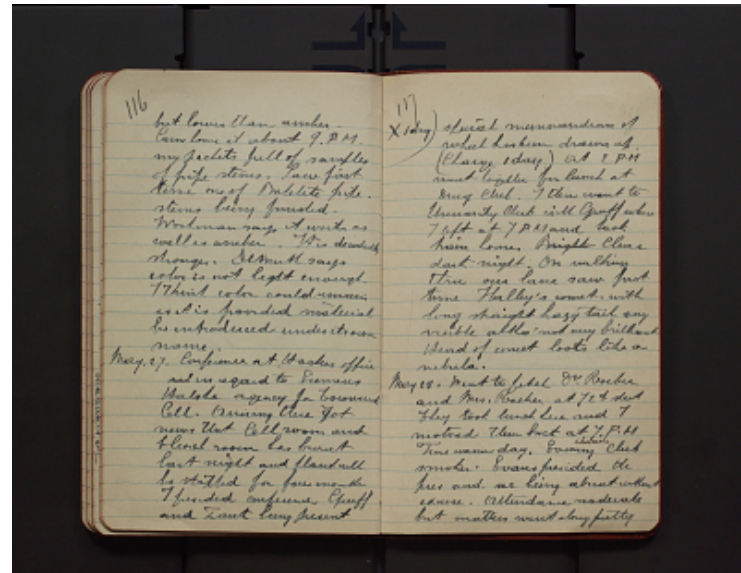 116
but lower than amber.
Came home it about 9 P.M.
my pockets full of samples
of pipe stems. Saw first
time one of Bakelite pipe
stems being finished.
Workman says it works as
well as amber. It is decidedly
stronger. Demuth says
color is not light enough.
I think color could remain
as it is provided material
be introduced under its own
name.
May 27. Conference at Hookers office
in regard to
Walsh agency for Townsend
Cell. Arriving there got
news that Cell room and
bleach room has burnt
last night and plant will
be stalled for four months
I presided conference
and being present
117
X 1 day) special memorandum of
which has been drawn up.
(Charge 1 day) At 1 P.M
went together for lunch at
Drug Club. I then went to
University Club with where
I left at 7 P.M and took
train home. Bright Clear
dark night. On walking
thru our lane saw first
time Halley's comet. with
long straight hazy tail very
visible altho' not very brilliant
Head of comet looks like a
nebula.
May 28. Went to fetch Dr
and Mrs. at 72d street
They took lunch here and I
motored them back at 7 P.M
Fine warm day. Evening Club
smoker. Evans presided the
pres and sec being absent without
excuse. Attendance moderate
but matters went along pretty